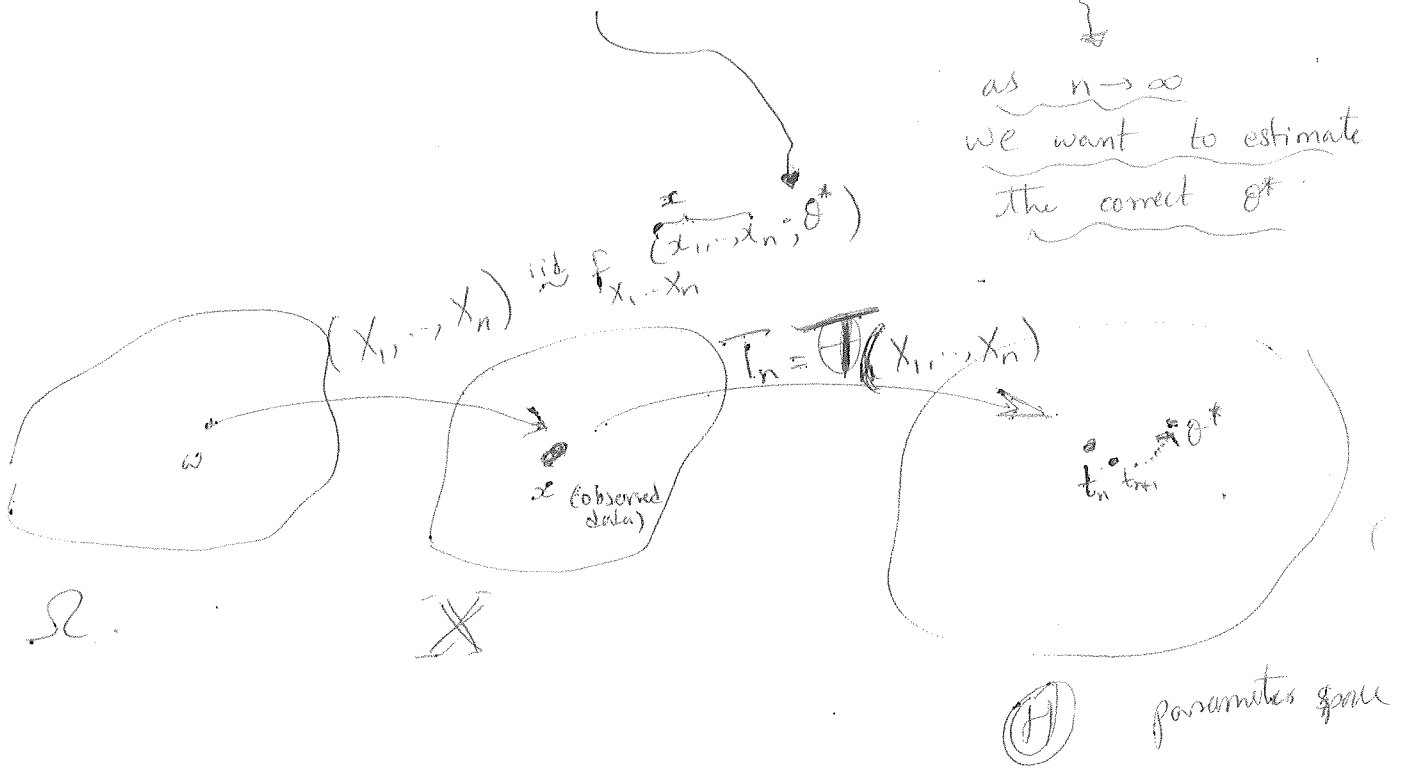 as n → ∞
we want to estimate
the correct θ*
x
(X₁, .., Xₙ) iid ~ f_{X₁ .. Xₙ} (x₁, .., xₙ ; θ*)
Tₙ = T(X₁, .., Xₙ)
ω
x (observed
data)
tₙ tₙ₊₁ θ*
Ω
𝕏
Θ parameter space